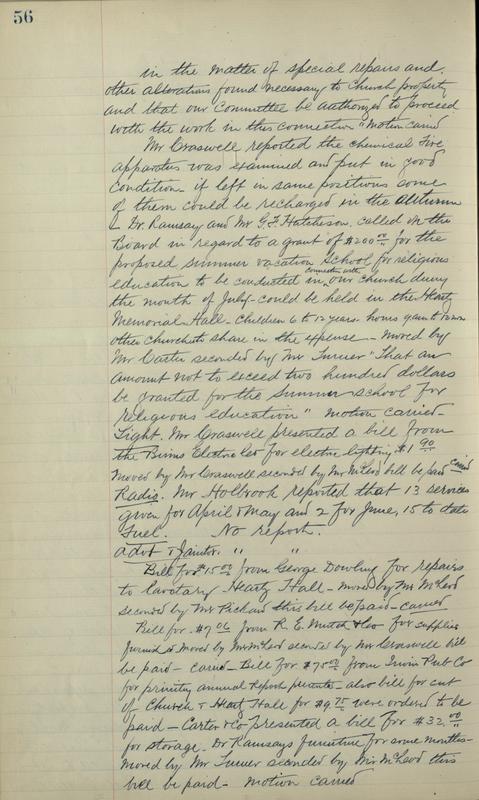 56
in the matter of special repairs and
other alterations found necessary to Church property
and that our committee be authorized to proceed
with the work in this connection" Motion carried
Mr Craswell reported the chemical fire
apparatus was examined and put in good
condition if left in same positions some
of them could be recharged in the autumn
Dr. Ramsay and Mr G.F. Hutcheson called on the
Board in regard to a grant of $200 00 for the
proposed summer vacation School for religious
education to be conducted in connection with our church during
the month of July - could be held in the Heartz
Memorial Hall - Children 6 to 12 years - hours 9 a.m to 12 noon
other churches to share in the expense - moved by
Mr Carter seconded by Mr Turner "That an
amount not to exceed two hundred dollars
be granted for the Summer School for
religious education" motion carried -
Light. Mr Craswell presented a bill from
the Burns Electric Co for electric lighting $1 90
moved by Mr Craswell seconded by Mr McLeod bill be paid carried
Radio. Mr Holbrook reported that 13 services
given for April & May and 2 for June, 15 to date
Fuel. No report.
Advt & Janitor " "
Bill for $15 00 from George Dowling for repairs
to lavatory Heartz Hall - moved by Mr McLeod
seconded by Mr Pickard this bill be paid - carried
Bill for $7 06 from R. E. Mutch & Co for supplies
furnished moved by Mr McLeod seconded by Mr Craswell bill
be paid - carried - Bill for $75 00 from Irwin Pub Co
for printing annual Report presented - also bill for cut
of Church & Heartz Hall for $9. 75 were ordered to be
paid - Carter & Co presented a bill for $32. 00
for storage Dr Ramsays furniture for some months -
moved by Mr Turner seconded by Mr McLeod this
bill be paid - motion carried